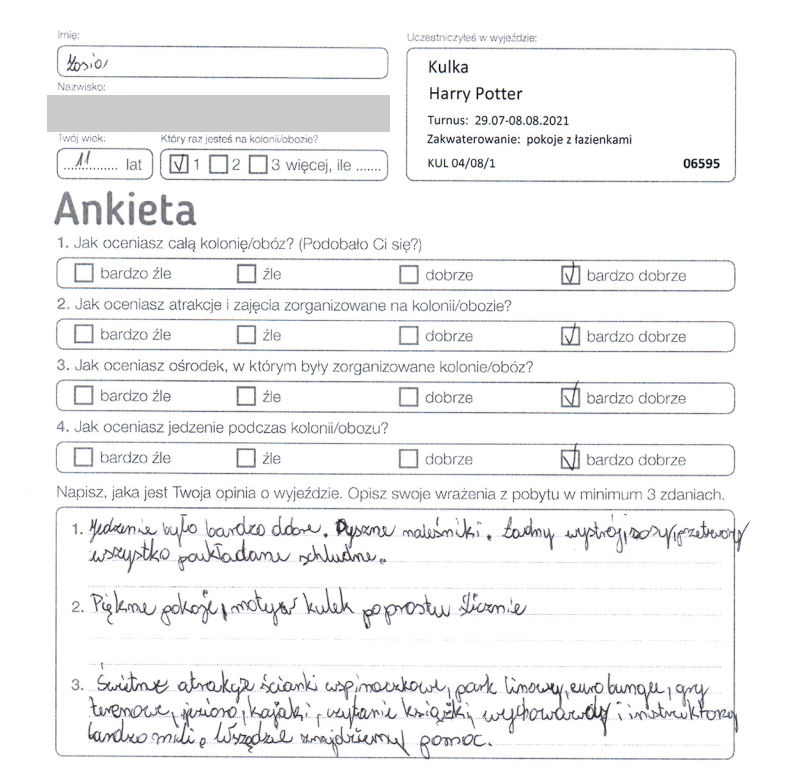 Imię:
Zosia
Uczestniczyłeś w wyjeździe:
Kulka
Harry Potter
Turnus: 29.07-08.08.2021
Zakwaterowanie: pokoje z łazienkami
KUL 04/08/1 06595
Nazwisko:
Twój wiek:
11 lat
Który raz jesteś na kolonii/obozie?
1 2 3 więcej, ile .......
Ankieta
1. Jak oceniasz całą kolonię/obóz? (Podobało Ci się?)
bardzo źle źle dobrze bardzo dobrze
2. Jak oceniasz atrakcje i zajęcia zorganizowane na kolonii/obozie?
bardzo źle źle dobrze bardzo dobrze
3. Jak oceniasz ośrodek, w którym były zorganizowane kolonie/obóz?
bardzo źle źle dobrze bardzo dobrze
4. Jak oceniasz jedzenie podczas kolonii/obozu?
bardzo źle źle dobrze bardzo dobrze
Napisz, jaka jest Twoja opinia o wyjeździe. Opisz swoje wrażenia z pobytu w minimum 3 zdaniach.
1. Jedzenie było bardzo dobre. Pyszne naleśniki. Ładny wystrój, sosy, przetwory
wszystko schludne.
2. Piękne pokoje, motyw kulek poprostu ślicznie
3. Świetne atrakcje ścianki wspinaczkowe, park linowy, euro bungee, gry
terenowe, jezioro, kajaki, czytanie książki, wychowawcy i instruktorzy
bardzo mili. Wszędzie znajdziemy pomoc.